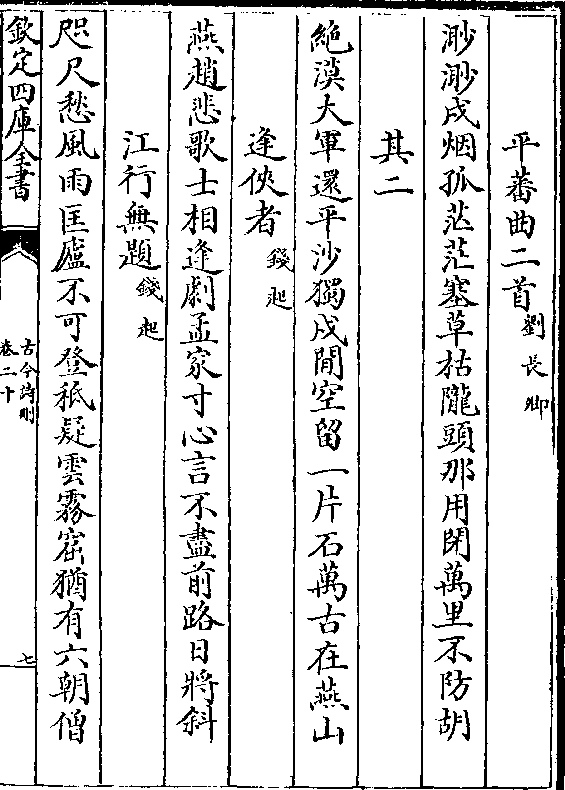 平蕃曲二首劉長卿
渺渺戍烟孤茫茫塞草枯隴頭那用閉萬里不防胡
其二
絶漠大軍還平沙獨戍閒空留一片石萬古在燕山
逢俠者錢起
燕趙悲歌士相逢劇孟家寸心言不盡前路日將斜
江行無題錢起
咫尺愁風雨匡廬不可登秖疑雲霧窟猶有六朝僧
欽定四庫全書
古今詩刪
卷二十
七